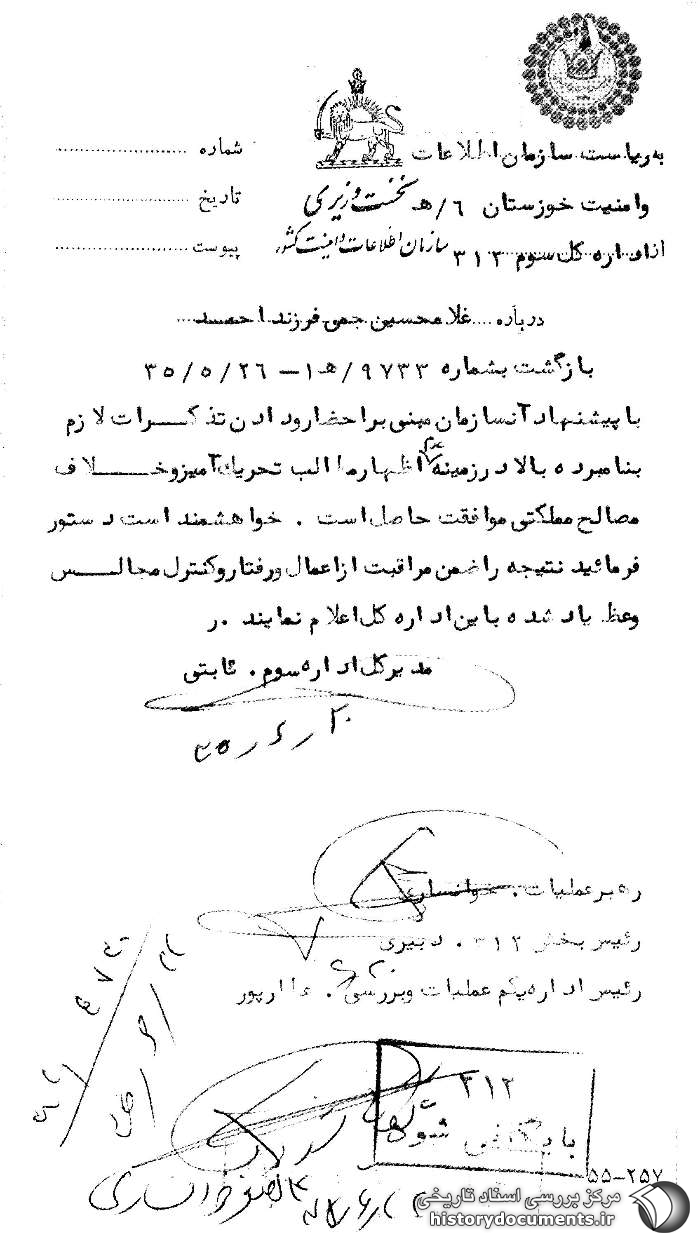 به ریاست سازمان اطلاعات
و امنیت خوزستان ۶/هـ
از اداره کل سوم ۳۱۲
نخست وزیری
سازمان اطلاعات و امنیت کشور
شماره
تاریخ
پیوست
درباره غلامحسین جمی فرزند احمد
بازگشت بشماره ۹۷۳۳/هـ۱ – ۳۵/۵/۲۶
با پیشنهاد آنسازمان مبنی براحضار و دادن تذکرات لازم
بنامبرده بالا در زمینه عدم اظهار مطالب تحریك آمیز و خلاف
مصالح مملکتی موافقت حاصل است . خواهشمند است دستور
فرمائید نتیجه را ضمن مراقبت از اعمال و رفتار و کنترل مجالس
وعظ یاد شده باین اداره کل اعلام نمایند . ر
مدیر کل اداره سوم . ثابتی
۲۰ ر ۶ ر ۳۵
رهبر عملیات . خوانساری
رئیس بخش ۳۱۲ . دبیری
رئیس اداره یکم عملیات و بررسی . عطارپور
۳۱۲
بایگانی شود
۵۵-۲۵۷
مرکز بررسی اسناد تاریخی
historydocuments.ir